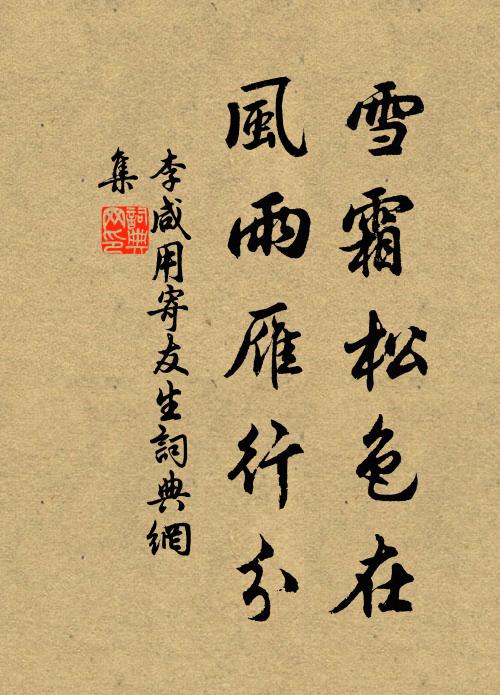 雪霜松色在
風雨雁行分
李咸用寄友生詞典網
集
詞典
网印